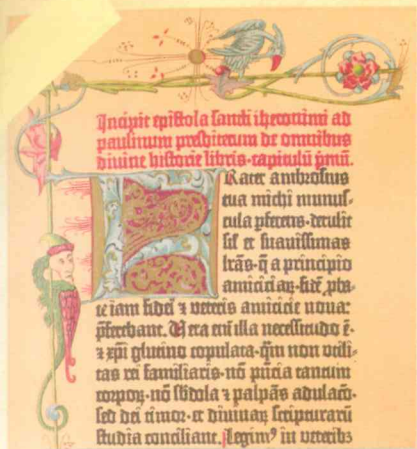 Incipit epistola sancti iheronimi ad
paulinum presbiterum de omnibus
divine historie libris·capitulū pmū.
Frater ambrosius
tua michi munus-
cula pferens·detulit
sił et suavissimas
lrās·q̄ a principio
amiciciaȝ·fidē pba-
te iam fidei ⁊ veteris amicicie nova:
pferebant. Vera eni illa necessitudo ē·
⁊ xpi glutino copulata·qm non utili-
tas rei familiaris·nō pncia tantum
corpoȝ·nō sbdola ⁊ palpās adulacō·
sed dei timor·et divinaȝ scripturarū
studia conciliant. Legim⁹ in veterib₃